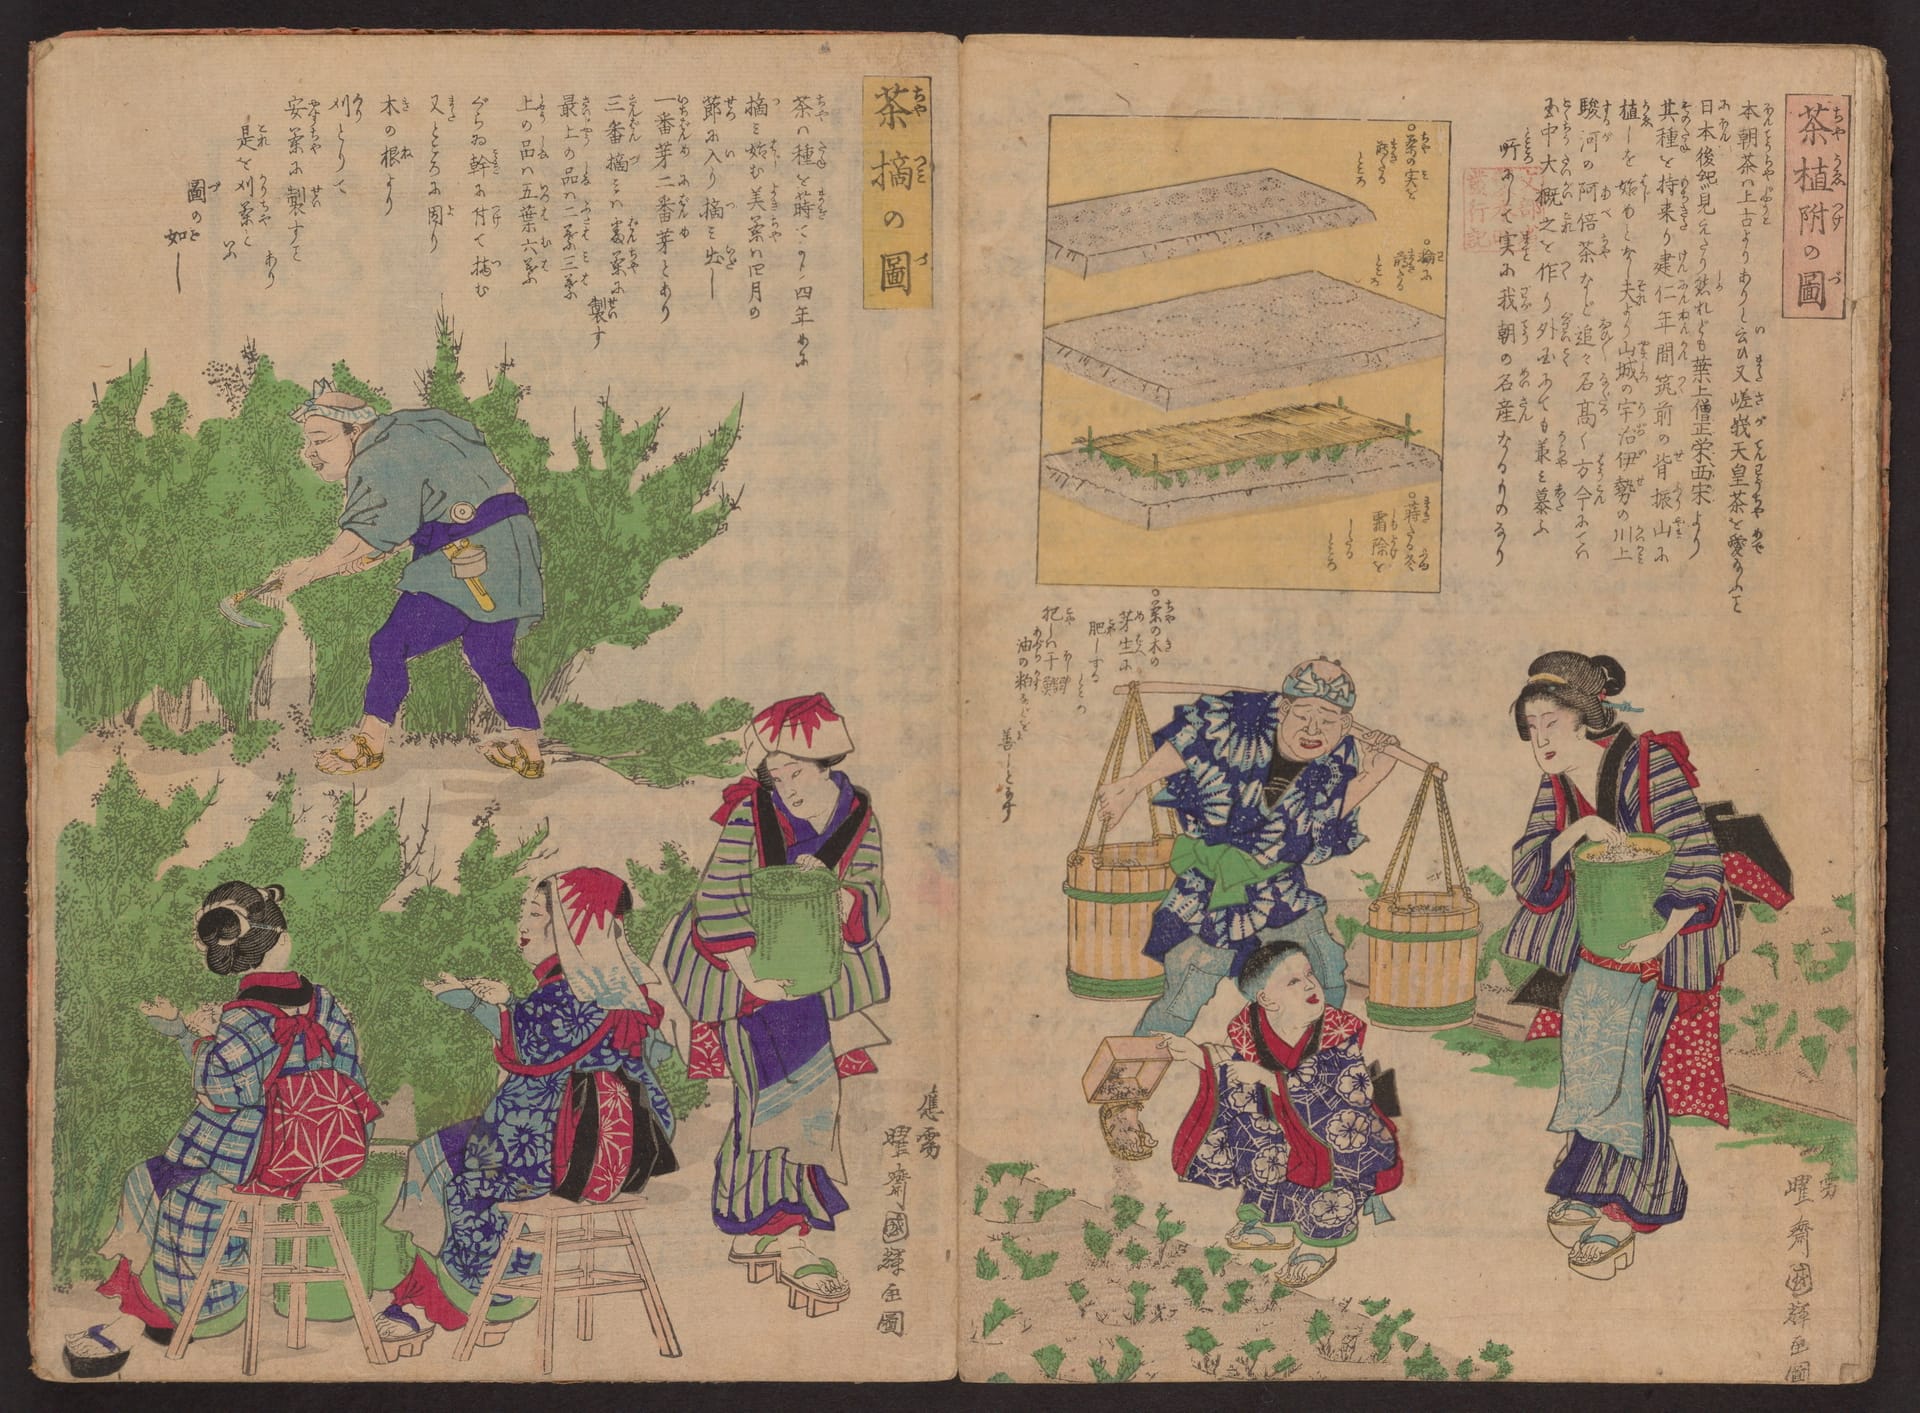 茶植附の圖
本朝茶ハ上古よりありと云ひ又嵯峨天皇茶を愛
日本後紀見えたり然れども葉上僧正栄西宋より
其種を持来り建仁年間筑前の背振山に
植しを始めとなし夫より山城の宇治伊勢の川上
駿河の阿倍茶など追々名高く方今に
大概之を作り外国にても
実に我朝の名産なるものなり
茶の実を
蒔たる
ところ
輪に
蒔たる
ところ
蒔たる
霜除を
したる
ところ
茶の木の
芽生に
肥しする
ところ
肥しハ干鰯
油の粕などを
善しとす
曜齋國輝画圖
茶摘の圖
茶ハ種を蒔てより四年めに
摘ミ始む美茶ハ四月の
節に入り摘ミ出し
一番芽二番芽とあり
三番摘ミハ
製す
最上の品ハ二葉三葉
上の品ハ五葉六葉
ぐらゐ幹に付て摘む
又ところに因り
木の根より
刈とりて
安茶に製すを
あり
是を刈茶と
いふ
圖の如し
應需
曜齋國輝画圖